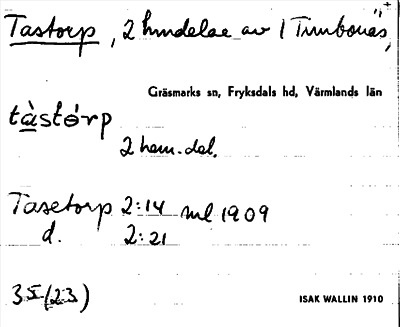 Tastorp, 2 hmdelar av 1 Timbonäs,
Gräsmarks sn, Fryksdals hd, Värmlands län
tàstórp
2 hem.del.
Tasetorp 2:14 ml 1909
d. 2:21
35 (23)
ISAK WALLIN 1910